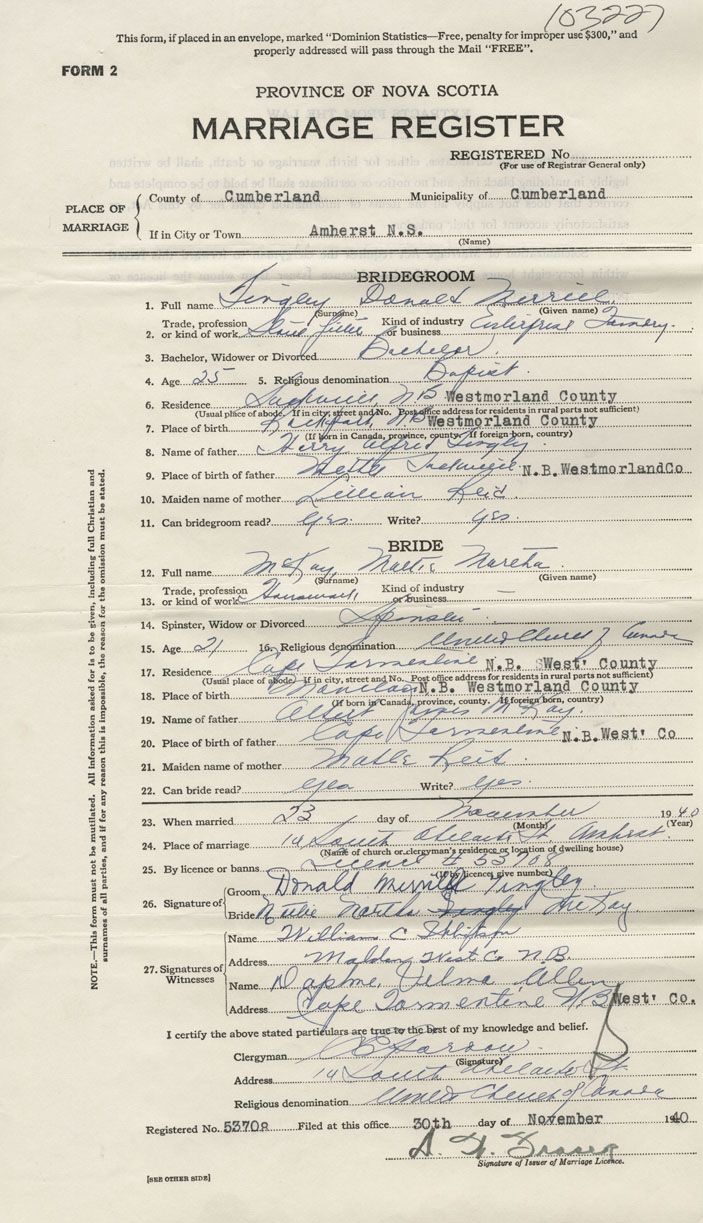 103227
This form, if placed in an envelope, marked "Dominion Statistics—Free, penalty for improper use $300," and
properly addressed will pass through the Mail "FREE".
FORM 2
PROVINCE OF NOVA SCOTIA
MARRIAGE REGISTER
REGISTERED No.
(For use of Registrar General only)
PLACE OF MARRIAGE
County of Cumberland Municipality of Cumberland
If in City or Town Amherst N.S.
(Name)
BRIDEGROOM
1. Full name Tingley Donald Merrill
(Surname) (Given name)
Trade, profession Kind of industry
2. or kind of work Stove fitter or business Enterprise Foundry.
3. Bachelor, Widower or Divorced Bachelor.
4. Age 25 5. Religious denomination Baptist.
6. Residence Sackville, N.B. Westmorland County
(Usual place of abode. If in city, street and No. Post office address for residents in rural parts not sufficient)
7. Place of birth Rockport, N.B. Westmorland County
(If born in Canada, province, county. If foreign born, country)
8. Name of father Alfred Tingley
9. Place of birth of father Sackville N.B. WestmorlandCo
10. Maiden name of mother Lillian Reid
11. Can bridegroom read? Yes. Write? Yes
BRIDE
12. Full name McKay, Martha
(Surname) (Given name)
Trade, profession Kind of industry
13. or kind of work Housework or business —
14. Spinster, Widow or Divorced Spinster
15. Age 21 16. Religious denomination United Church of Canada
17. Residence Cape Tormentine N.B. West' County
(Usual place of abode. If in city, street and No. Post office address for residents in rural parts not sufficient)
18. Place of birth N.B. Westmorland County
(If born in Canada, province, county. If foreign born, country)
19. Name of father Albert James McKay.
20. Place of birth of father Cape Tormentine N.B. West' Co
21. Maiden name of mother
22. Can bride read? Yes Write? Yes.
23. When married 23 day of November 1940
(Month) (Year)
24. Place of marriage 14 South Adelaide St. Amherst.
(Name of church or clergyman's residence or location of dwelling house)
25. By licence or banns Licence # 53708
(If by licence give number)
26. Signature of
Groom Donald Merrill Tingley.
Bride Martha Tingley McKay
27. Signatures of Witnesses
Name William C
Address West. Co. N.B.
Name Daphne Velma Allen
Address Cape Tormentine N.B. West' Co.
I certify the above stated particulars are true to the best of my knowledge and belief.
Clergyman
(Signature)
Address 14 South Adelaide St.
Religious denomination United Church of Canada
Registered No. 53708 Filed at this office 30th day of November 1940
Signature of Issuer of Marriage Licence.
[SEE OTHER SIDE]
NOTE.—This form must not be mutilated. All information asked for is to be given, including full Christian and
surnames of all parties, and if for any reason this is impossible, the reason for the omission must be stated.